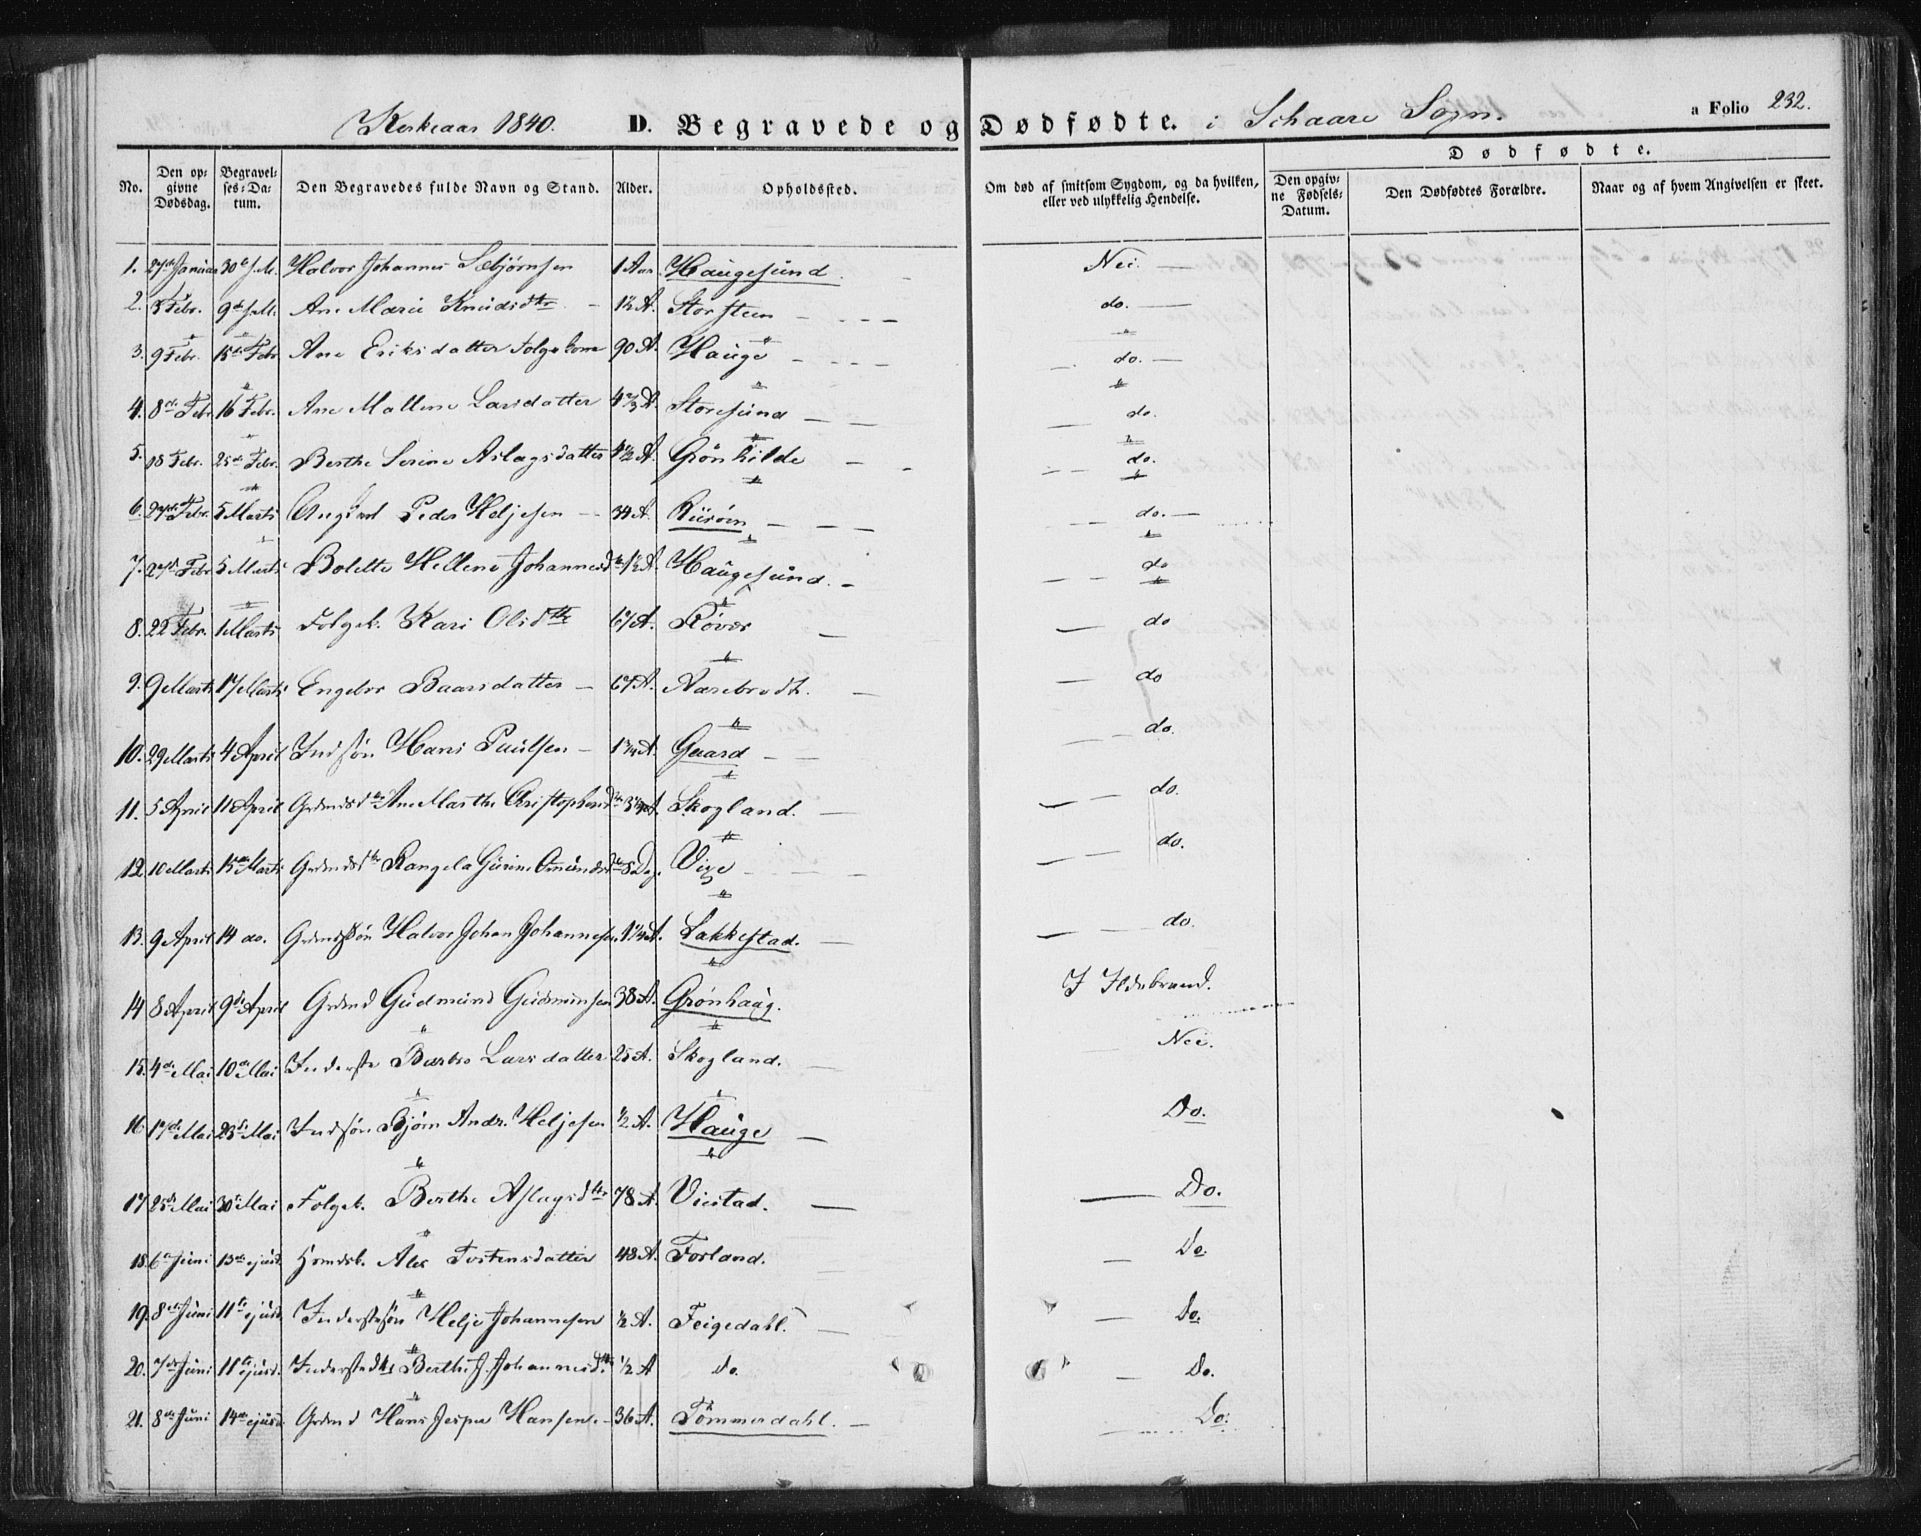 Kirkeaar 1840. D. Begravede og Dødfødte. i Schaare Sogn. a Folio 232.
Dødfødte.
No. Den opgivne Dødsdag. Begravelses-Datum. Den Begravedes fulde Navn og Stand. Alder. Opholdssted. Om død af smitsom Sygdom, og da hvilken, eller ved ulykkelig Hendelse. Den opgivne Fødsels-Datum. Den Dødfødtes Forældre. Naar og af hvem Angivelsen er skeet.
1. 27de Januar 30te s.M. Halvor Johannes Sæbjørnsen 1 Aar. Haugesund. Nei.
2. 3 Febr. 9de s.M. Ane Marie Knudsdtr 1½ A. Storsteen do.
3. 9 Febr. 15de Febr. Ane Eriksdatter Folgekone 90 A. Hauge do.
4. 8de Febr. 16 Febr. Ane Mallene Larsdatter 4 A. Storesund do.
5. 18 Febr. 25de Febr. Berthe Serine Aslagsdatter 4½ A. Grønhilde do.
6. 27de Febr. 5 Marts Peder Heljesen 34 A. do.
7. 27de Febr. 5 Marts Bolette Hellene Johannesd 1½ A. Haugesund. do
8. 22 Febr. 1 Marts Folgek. Kari Olsdtr 67 A. Røvær do
9. 9 Marts 17 Marts Engebor Baarsdatter 67 A. Aarebrodt. do
10. 29 Marts 4 April Indsøn Hans Paulsen 1¾ A. Gaard do.
11. 5 April 11 April Grdmdsdtr Ane Marthe Christophersd A. Skogland. do.
12. 10 Marts 15de Marts Grdmdsdtr Rangela Gurine Omundsd 8 Dag. Vige do.
13. 9 April 14 do. Grdmdssøn Halvor Johan Johannesen 1¼ A. Lakkestad. do.
14 8 April 9de April Grdmd Gudmund Gudmunsen 38 A. Grønhaug. I Ildebrand.
15. 4de Mai 10de Mai Inderste Barbro Larsdatter 25 A. Skogland. Nei.
16 17de Mai 23de Mai Indsøn Bjørn Andr. Heljesen ½ A. Hauge Do.
17 25de Mai 30te Mai Folgek. Berthe Aslagsdtr 78 A. Viestad. Do.
18. 6te Juni 13de ejusd. Hsmdsk. Ales Tostensdatter 48 A. Forland. Do.
19. 8de Juni 11te ejusd. Inderstesøn Helje Johannesen ½ A. Feigedahl. Do.
20. 7de Juni 11te ejusd. Inderstedtr Berthe J. Johannesdtr ½ A do. Do.
21. 8de Juni 14de ejusd. Grdmd Hans Jesper Hansen. 36 A. Tømmerdahl. Do.